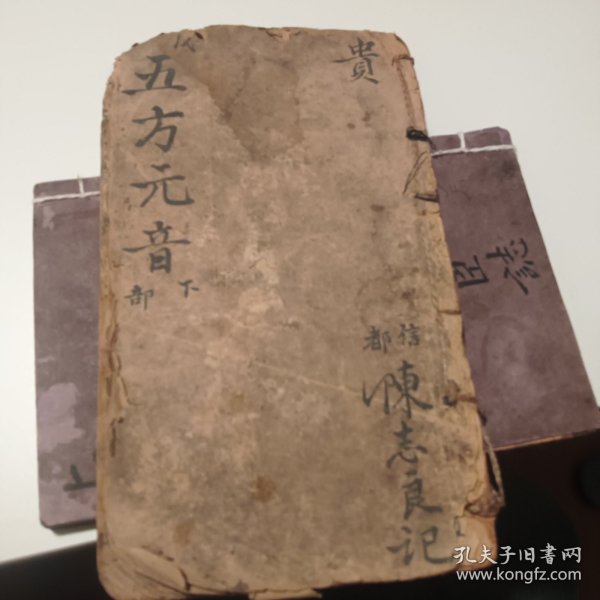 貴
五方元音
下部
信都
陳志良记
孔夫子旧書网
www.kongfz.com